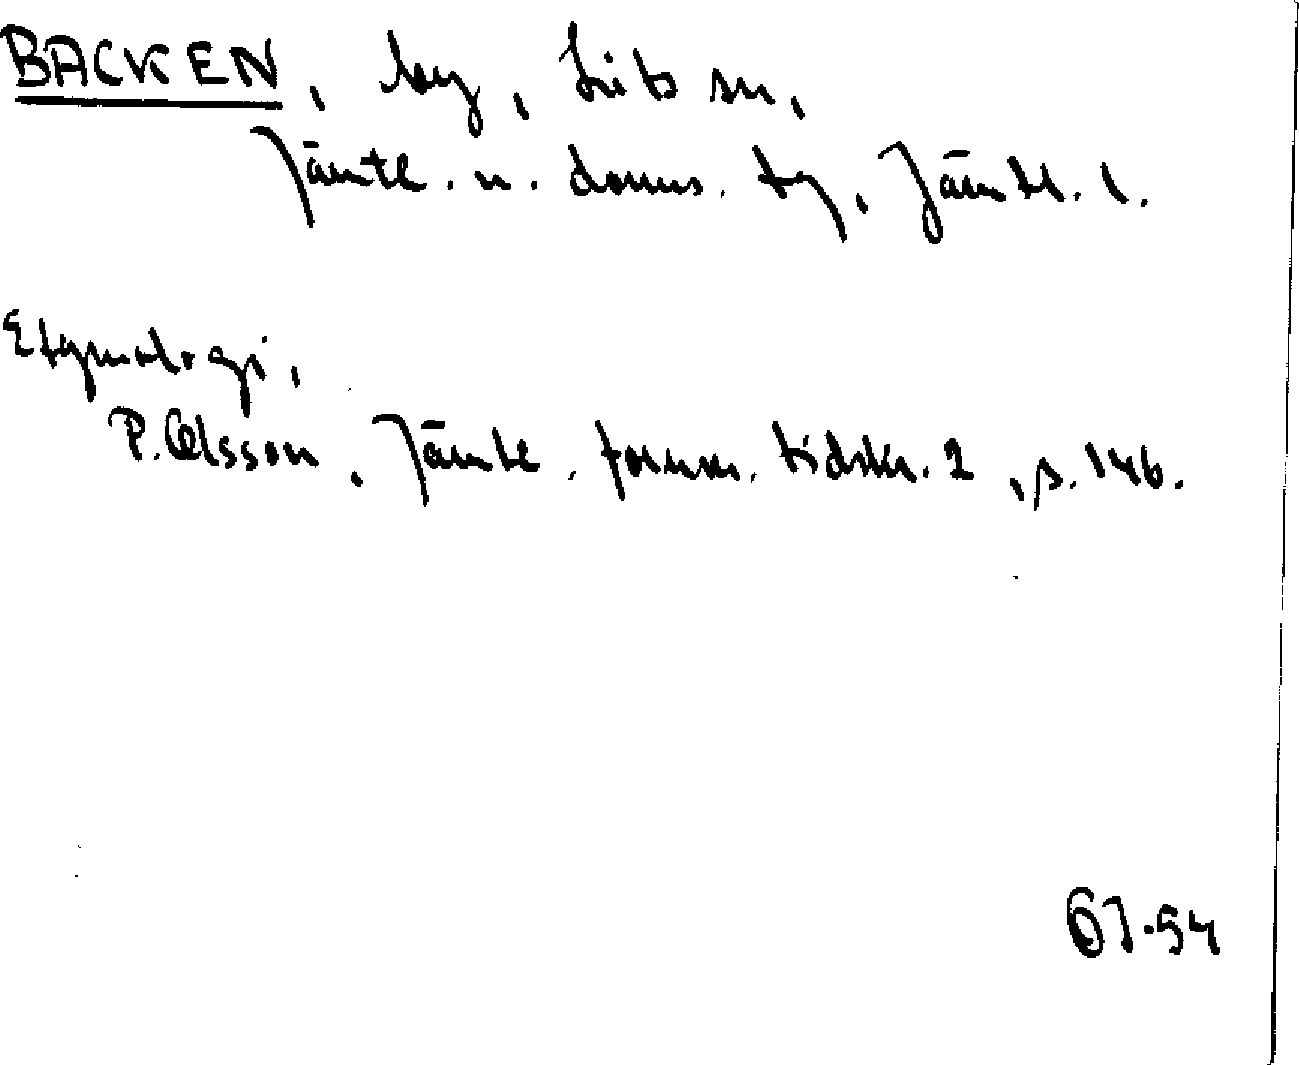 BACKEN, by, Lits sn,
Jämtl. n. doms. tg, Jämtl. l.
Etymologi,
P. Olsson, Jämtl. fornm. tidskr. 2, s. 146.